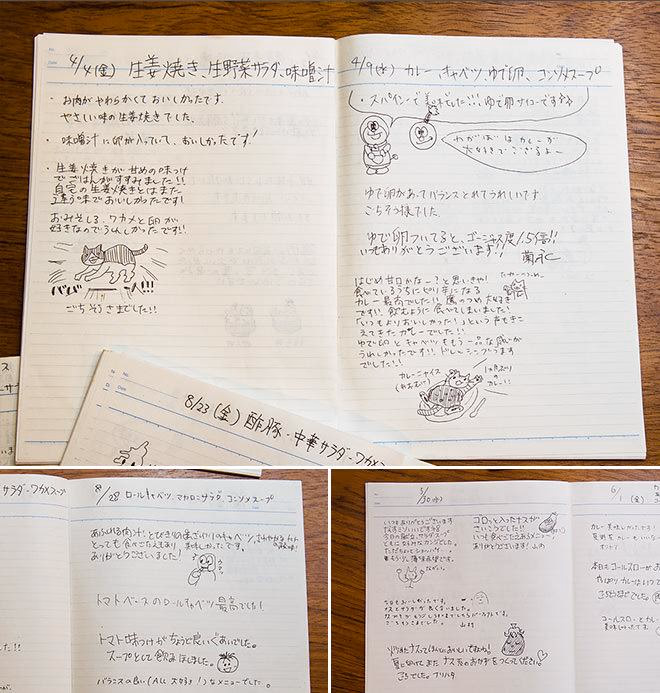 4/4(金) 生姜焼き、生野菜サラダ、味噌汁
・お肉がやわらかくておいしかったです。
やさしい味の生姜焼きでした。
・味噌汁に卵が入っていて、おいしかったです!
・生姜焼きが甘めの味つけ
でごはんがすすみました!!
自宅の生姜焼きとはまた
違う味でおいしかったです!
おみそしる、ワカメと卵が
好きなのでうれしかったです!!
ごちそうさまでした!!
4/9(水) カレー、キャベツ、ゆで卵、コンソメスープ
・スパイシーで美味でした!!! ゆで卵サイコーです
わがはいはカレーが
大好きでござるよー
ゆで卵があってバランスとれてうれしいです
ごちそう様でした。
ゆで卵ついてると、ゴージャス度1.5倍!!
いつもありがとうございます!!
はじめ甘口かなー?と思いきや!
食べているうちにピリ辛になる
カレー最高でした!! 鷹のつめ大好き
です!! 飲むように食べてしまいました!
「いつもよりおいしかった!」という声もきこ
えてきたカレーでした!!
ゆで卵とキャベツももう一品な感じが
うれしかったです!! ドレッシングうま
でした!!
カレーニャイス
1ヵ月ぶりの
カレー!!
8/23(金) 酢豚・中華サラダ・ワカメス
サラダ・ワカメスープ
8/28 ロールキャベツ、マカロニサラダ、コンソメスープ
とっても食べごたえもあり
ありがとうございました!
トマトベースのロールキャベツ最高でした!
トマト味つけがちょうど良いぐあいでした。
スープとして飲みほしました。
バランスの良い(ALL大好き!)なメニューでした。
5/30(水)
いつもありがとうございます
コロッと入ったナスが
さいこうでした!!
いつも食べごたえあるメニュー
ありがとうございます!
なすもおいしかったです。
ごちそうさまでした。
6/1(金)
カレー美味しかったです!
コールスローとカレー